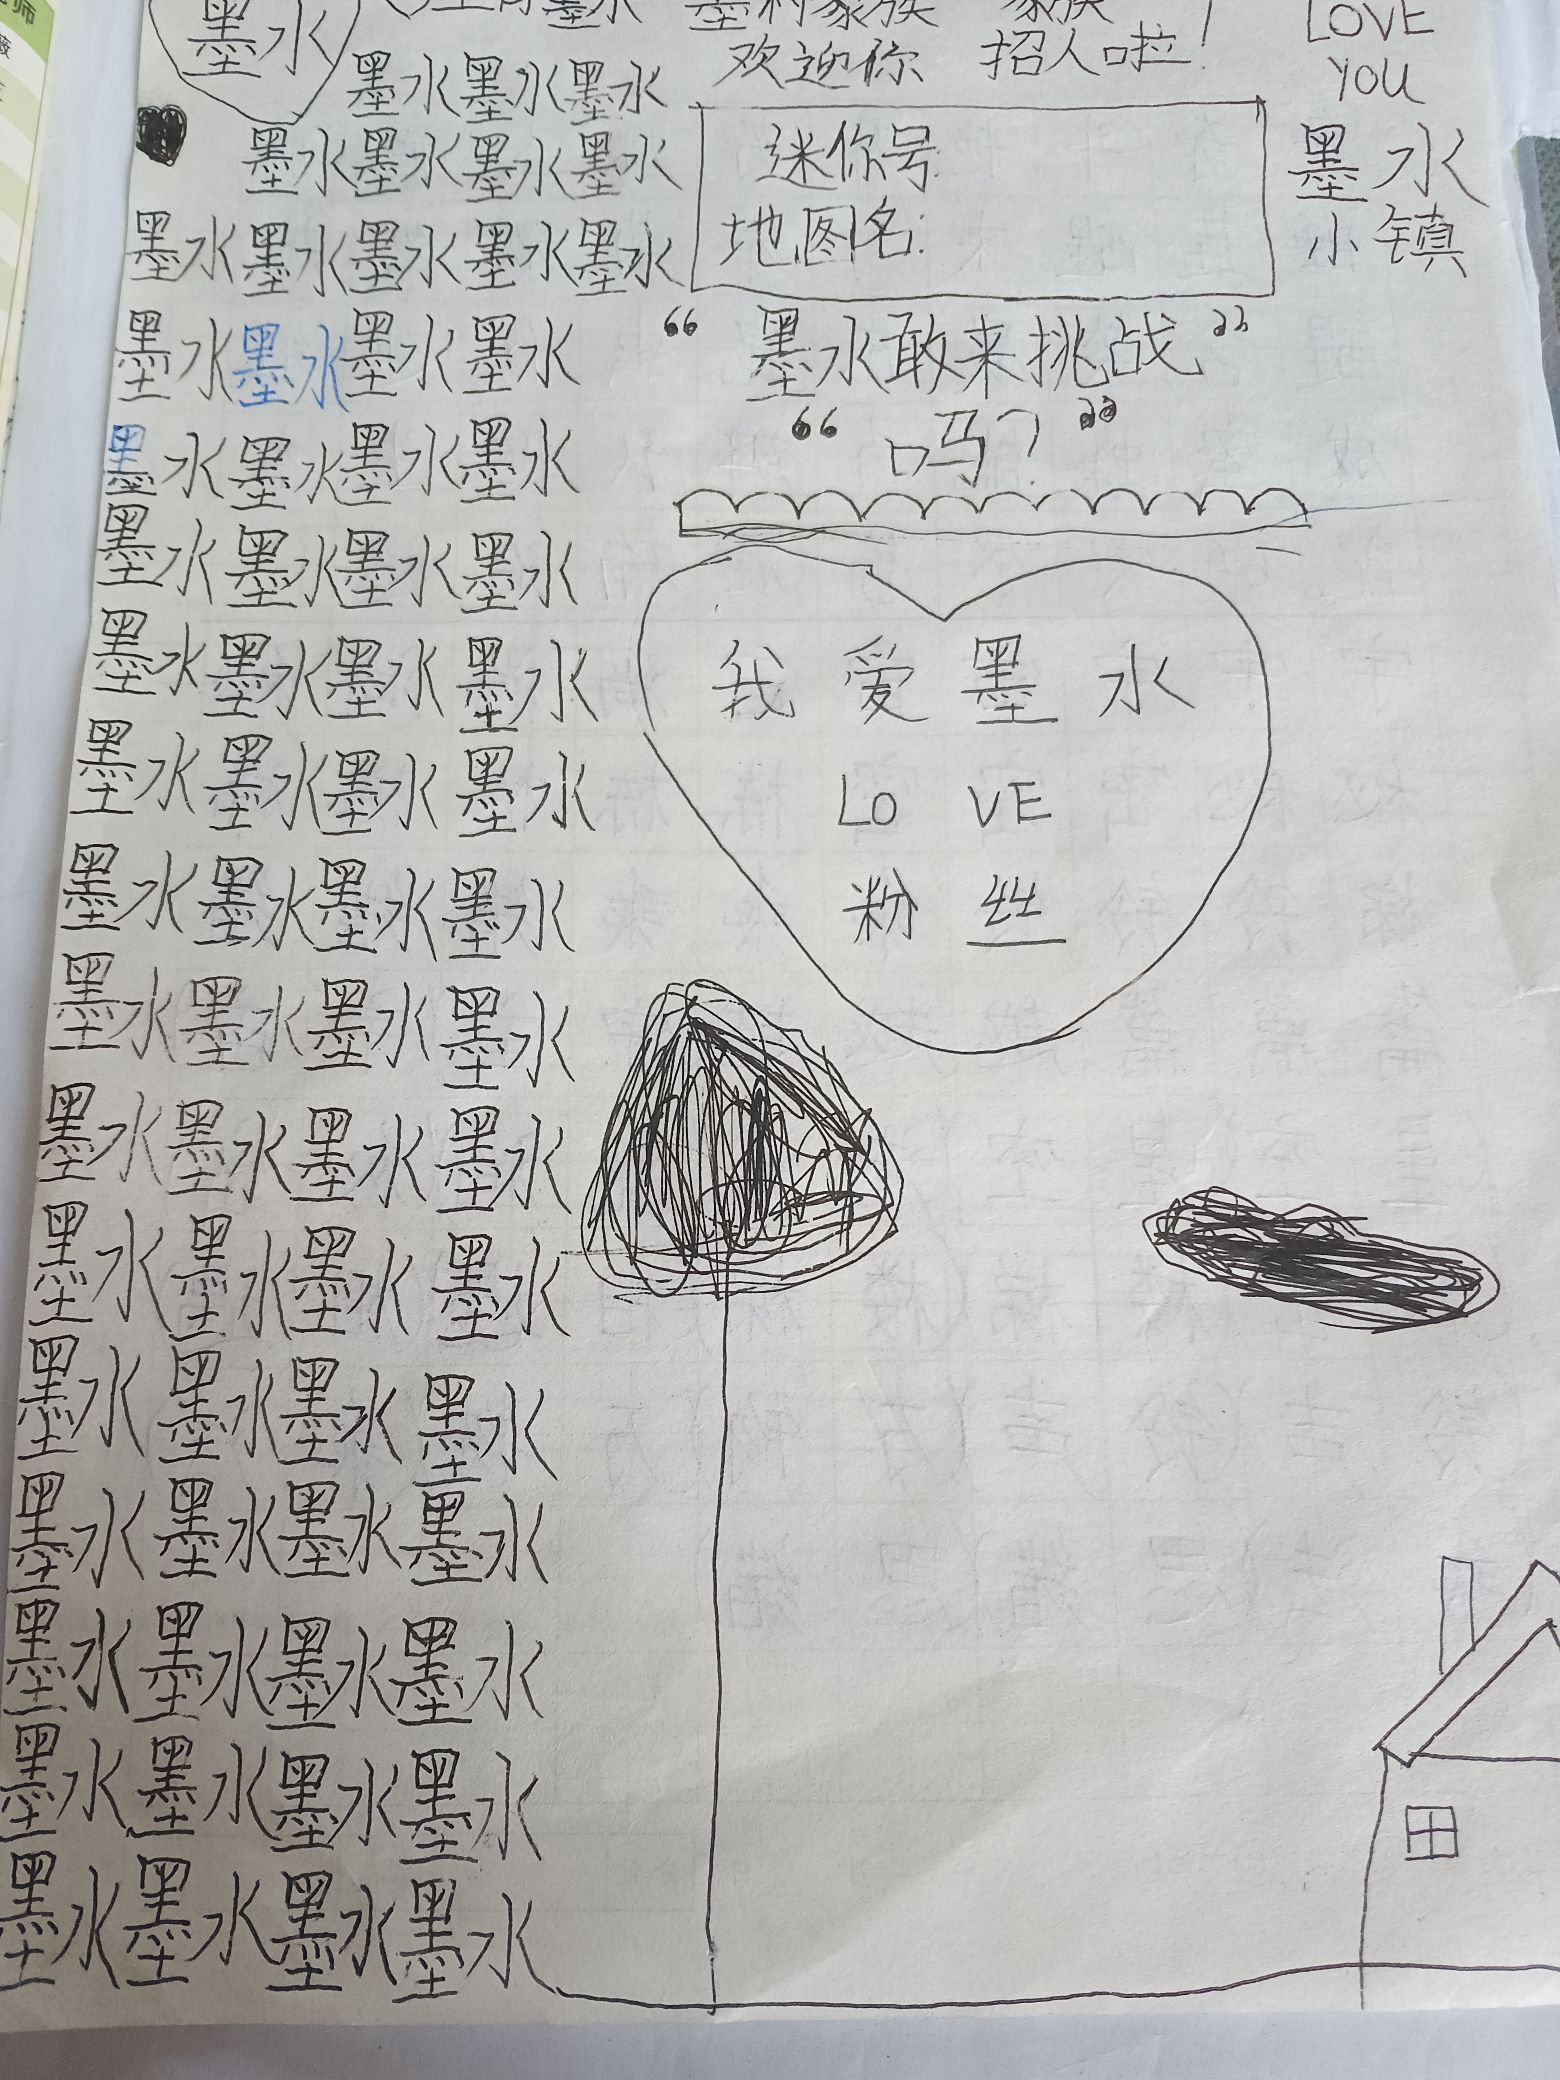 墨水
墨水墨水墨水
墨水墨水墨水墨水
墨水墨水墨水墨水墨水
墨水墨水墨水墨水
墨水墨水墨水墨水
墨水墨水墨水墨水
墨水墨水墨水墨水
墨水墨水墨水墨水
墨水墨水墨水墨水
墨水墨水墨水墨水
墨水墨水墨水墨水
墨水墨水墨水墨水
墨水墨水墨水墨水
墨水墨水墨水墨水
墨水墨水墨水墨水
墨水墨水墨水墨水
墨水墨水墨水墨水
家族 家族
欢迎你 招人啦!
迷你号:
地图名:
“墨水敢来挑战”
“吗?”
我爱墨水
LOVE
粉丝
LOVE
YOU
墨水
小镇